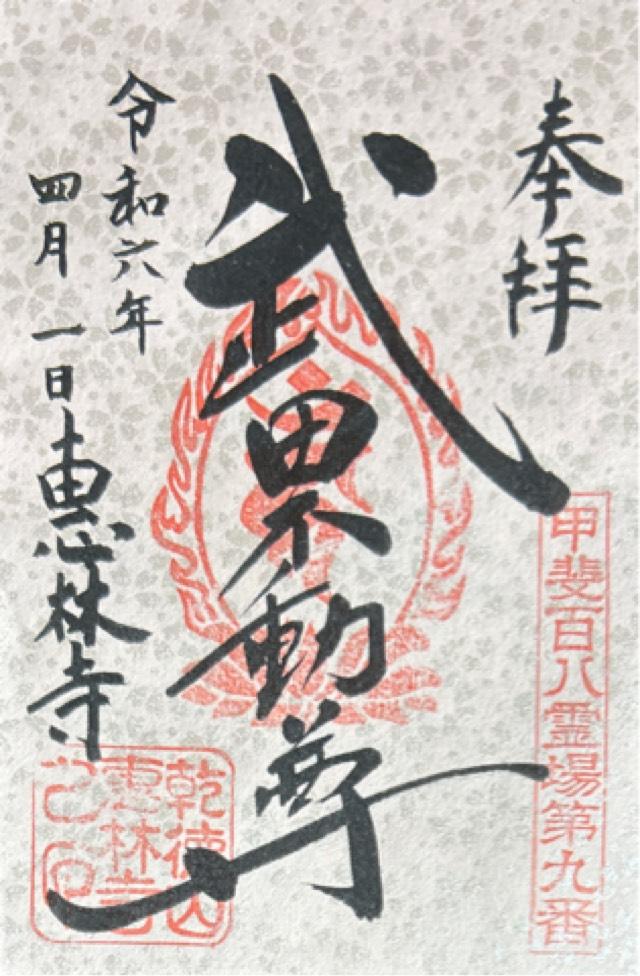 奉拝
甲斐百八霊場第九番
武田不動尊
令和六年
四月一日
恵林寺
乾徳山
恵林寺